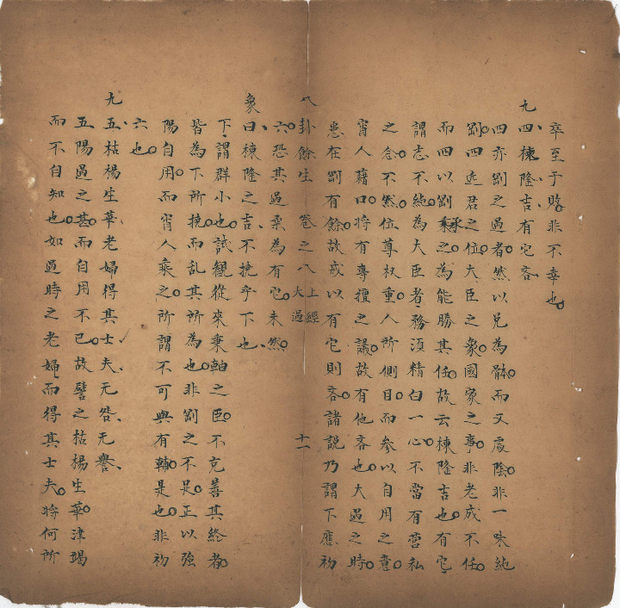 卒至于賂非不幸也
九四棟隆吉有它吝
四亦剛之過者然以兌為骵而又處陰非一味純
剛四近君之位大臣之象國家之事非老成不任
而四以剛承之為能勝其任故云棟隆吉也有它
謂志不純為大臣者務須精白一心不當有營私
之念不然位尊权重人所側目而參以自用之意
宵人藉口将有專擅之議故有他吝也大過之時
患在剛有餘故戒以有它則吝諸說乃謂下應初
八卦餘生 卷之八 上經 大過 十一
六恐其過柔為有它未然
象曰棟隆之吉不撓乎下也
下謂群小也試觀從來秉軸之臣不克善其終者
皆為下所撓而乱其所為也非剛之不足正以強
陽自用而宵人乘之所謂不可與有輔是也非初
六也
九五枯楊生華老婦得其士夫无咎无譽
五陽過之甚而自用不已故譬之枯楊生華津竭
而不自知也如過時之老婦而得其士夫時何所